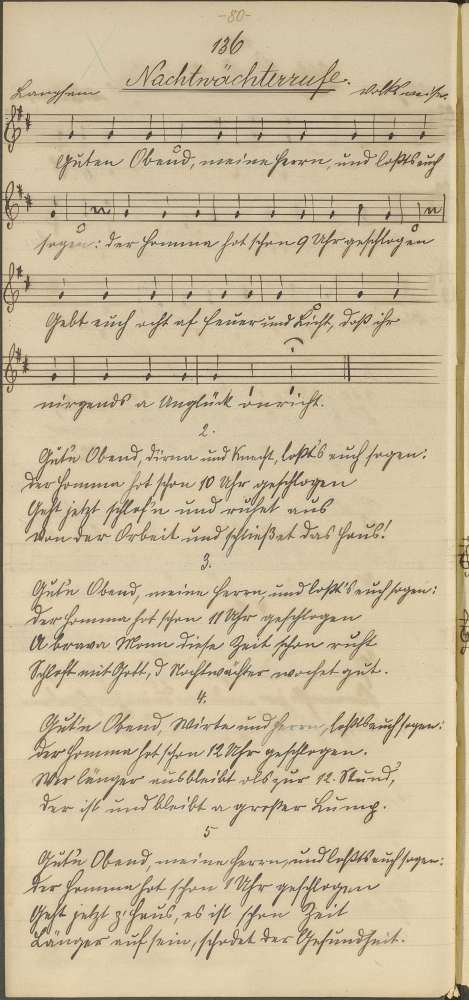 -80-
136
Nachtwächterrufe.
Langsam Volksweise.
Guten Obend, meine Herrn, und loßts euch
sogen: der Homma hot schon 9 Uhr geschlogen
Gebt euch ocht af Feuer und Licht, doß ihr
nirgends a Unglück onricht.
2.
Gut'n Obend, Dirna und Knecht, loßt's euch sogen:
Der Homma hot schon 10 Uhr geschlogen
Geht jetzt schlof'n und ruhet aus
Von der Orbeit und schließet das Haus!
3.
Gut'n Obend, meine Herrn, und loßt's euch sogen:
Der Homma hot schon 11 Uhr geschlogen
A brava Monn diese Zeit schon ruht
Schloft mit Gott, d Nochtwächter wochet gut.
4.
Gut'n Obend, Wirte und Herrn, loßts euch sogen:
Der Homma hot schon 12 Uhr geschlogen.
Wer länger ausbleibt als zur 12. Stund,
Der ist und bleibt a großer Lump.
5
Gut'n Obend, meine Herrn, und loßts euch sogen:
Der Homma hot schon 1 Uhr geschlogen
Geht jetzt z'Haus, es ist schon Zeit
Länger auf sein, schodet der Gesundheit.